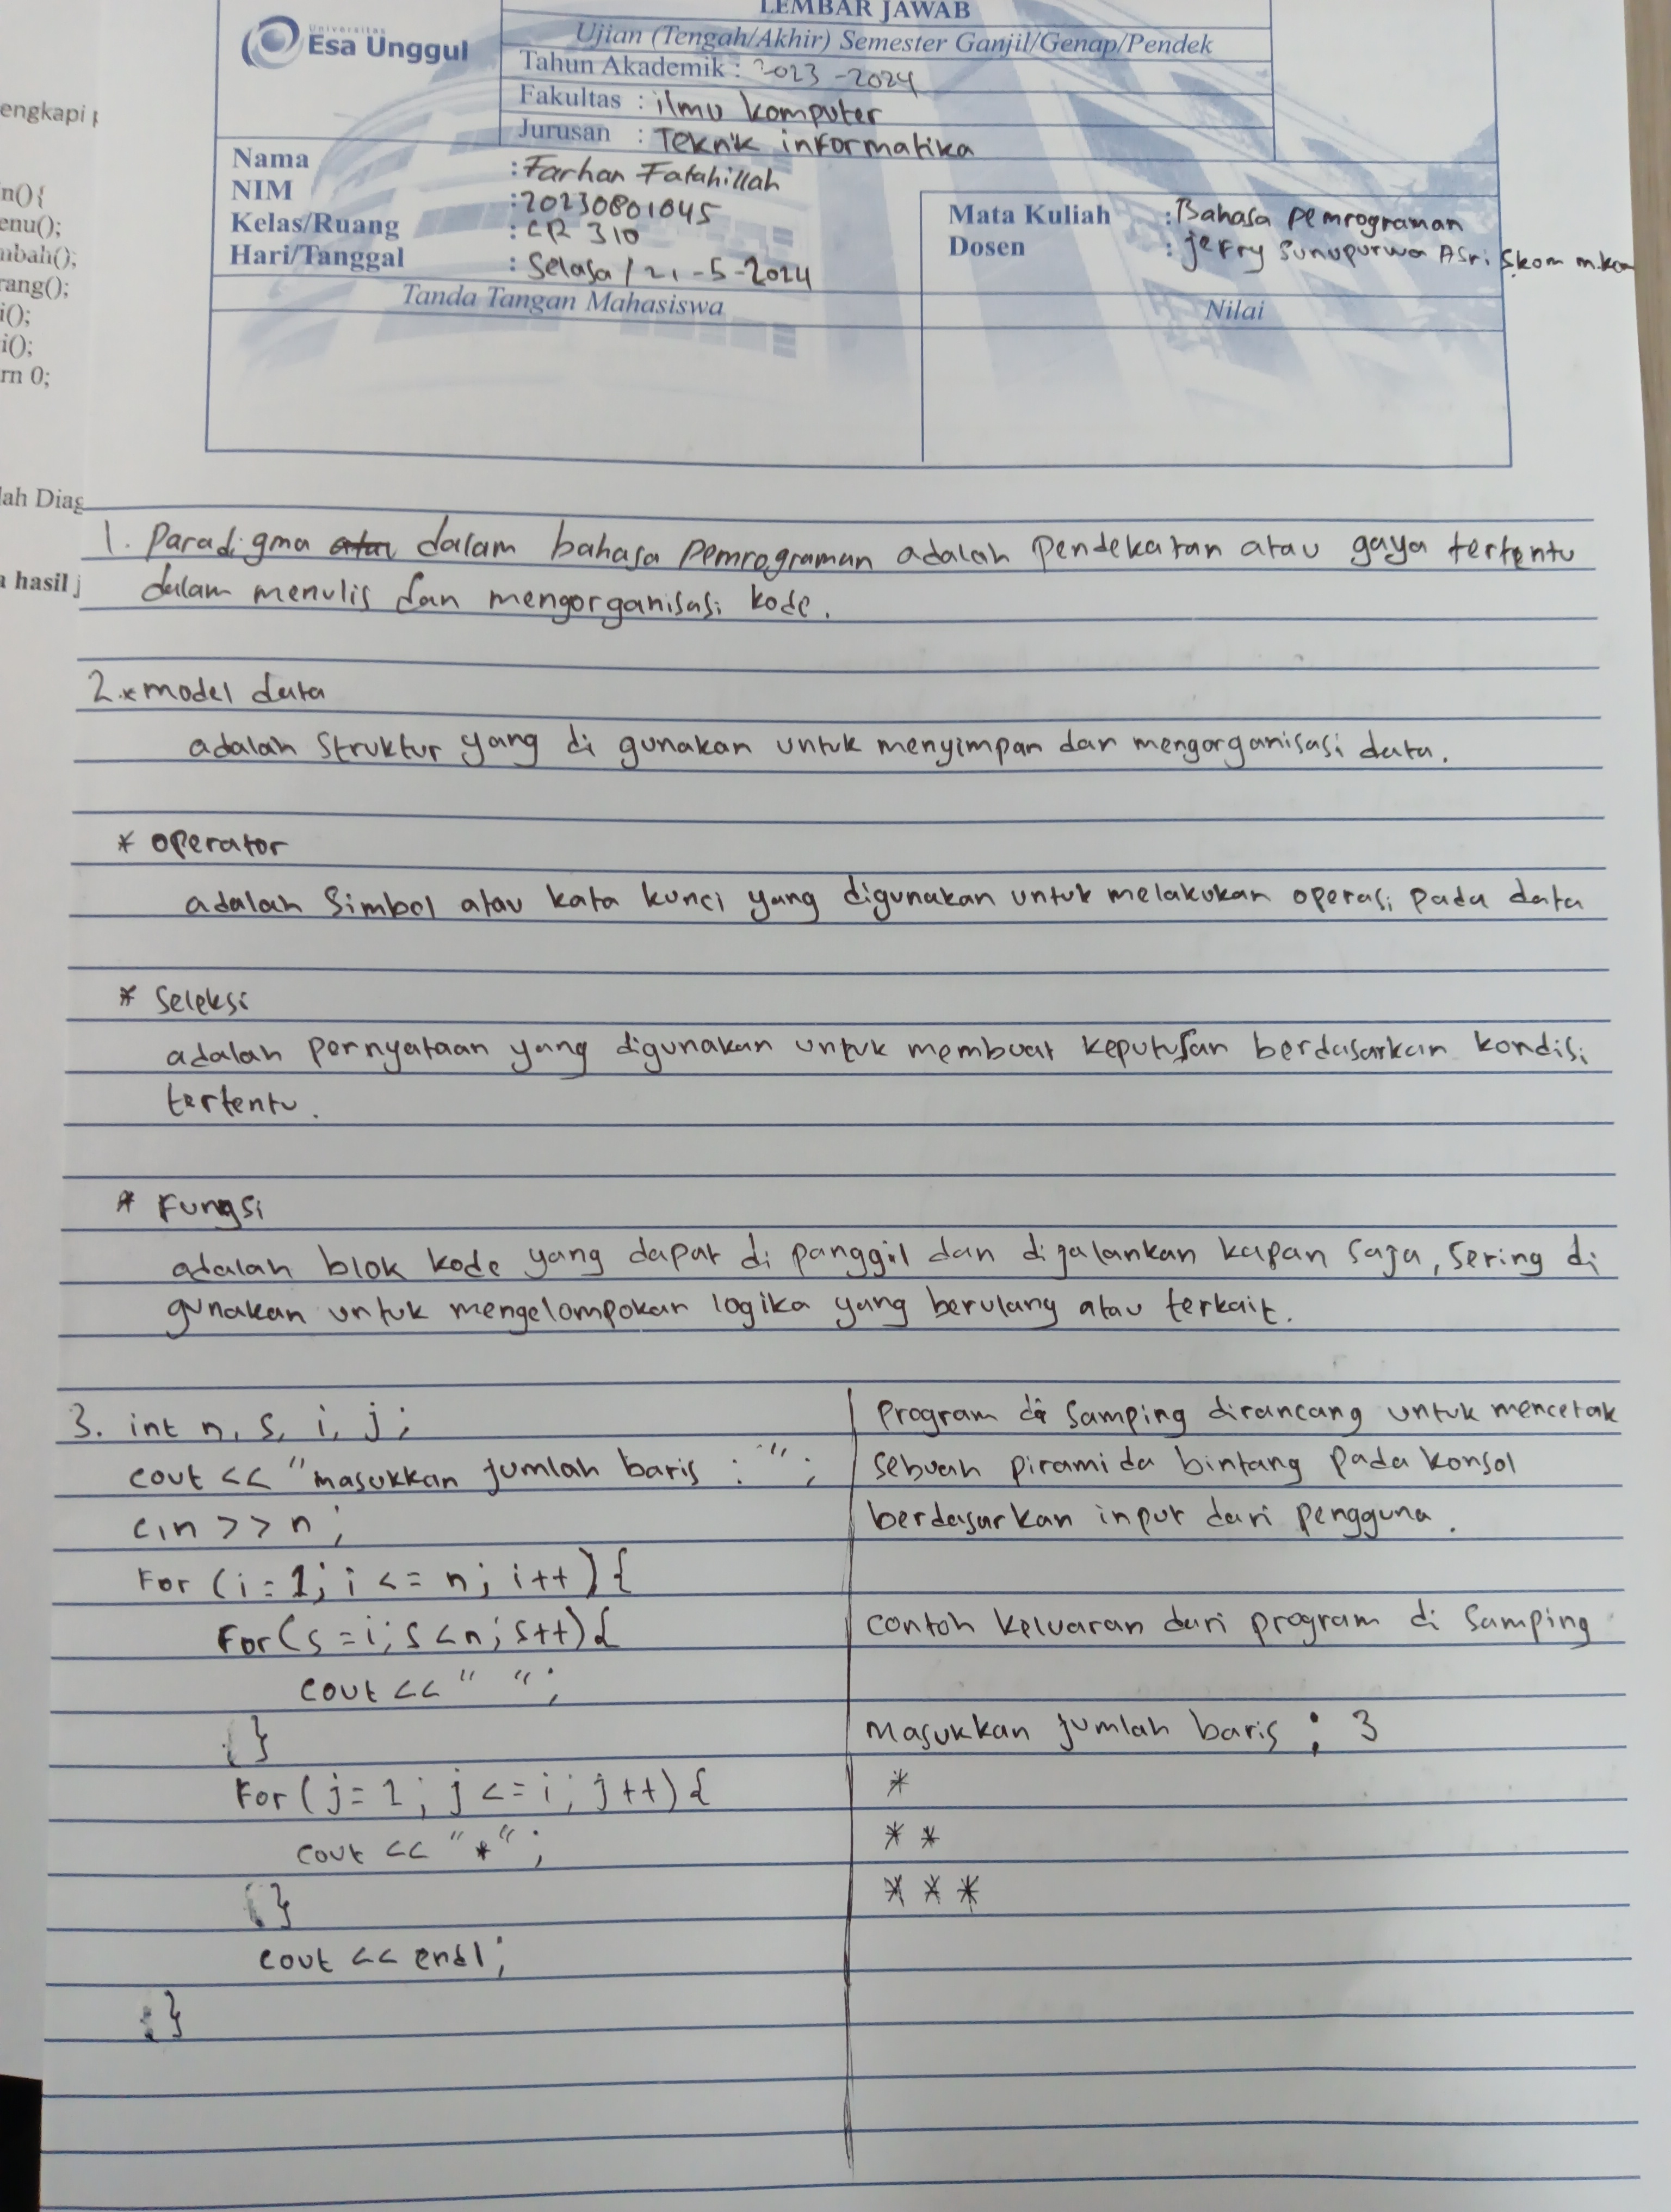 LEMBAR JAWAB
Universitas
Esa Unggul
Ujian (Tengah/Akhir) Semester Ganjil/Genap/Pendek
Tahun Akademik : 2023-2024
Fakultas : ilmu komputer
Jurusan : Teknik informatika
Nama : Farhan Fatahillah
NIM : 20230801045
Kelas/Ruang : CR 310
Hari/Tanggal : Selasa / 21-5-2024
Mata Kuliah : Bahasa pemrograman
Dosen : jefry Sunupurwa Asri Skom m.kom
Tanda Tangan Mahasiswa
Nilai
engkapi
n(){
enu();
mbah();
rang();
i();
i();
rn 0;
lah Diag
a hasil j
1. Paradigma atau dalam bahasa pemrograman adalah pendekatan atau gaya tertentu
dalam menulis dan mengorganisasi kode.
2. * model data
adalah struktur yang di gunakan untuk menyimpan dan mengorganisasi data.
* operator
adalah simbol atau kata kunci yang digunakan untuk melakukan operasi pada data
* Seleksi
adalah pernyataan yang digunakan untuk membuat keputusan berdasarkan kondisi
tertentu.
* Fungsi
adalah blok kode yang dapat di panggil dan dijalankan kapan saja, sering di
gunakan untuk mengelompokan logika yang berulang atau terkait.
3. int n, s, i, j;
cout << "masukkan jumlah baris : ";
cin >> n;
For (i = 1; i <= n; i++) {
For (s = i; s < n; s++) {
cout << " ";
}
For (j = 1; j <= i; j++) {
cout << "*";
}
cout << endl;
}
program di samping dirancang untuk mencetak
sebuah piramida bintang pada konsol
berdasarkan input dari pengguna.
contoh keluaran dari program di samping
masukkan jumlah baris : 3
*
* *
* * *